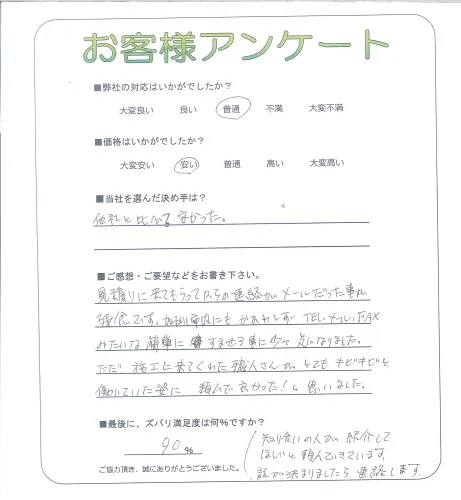 お客様アンケート
■弊社の対応はいかがでしたか？
大変良い 良い 普通 不満 大変不満
■価格はいかがでしたか？
大変安い 安い 普通 高い 大変高い
■当社を選んだ決め手は？
他社と比べる 安かった。
■ご感想・ご要望などをお書き下さい。
見積りに来てもらってからの連絡がメールだった事が
残念です。 にもかかわらず TEL・メール、FAX
みたいな簡単に すませる事に少々気になりました。
ただ 施工に来てくれた職人さんが とてもキビキビと
働いていた姿に 頼んで良かった！と思いました。
■最後に、ズバリ満足度は何％ですか？
90％
知り合いの人から紹介して
ほしいと頼んできています
話が決まりましたら連絡します
ご協力頂き、誠にありがとうございました。